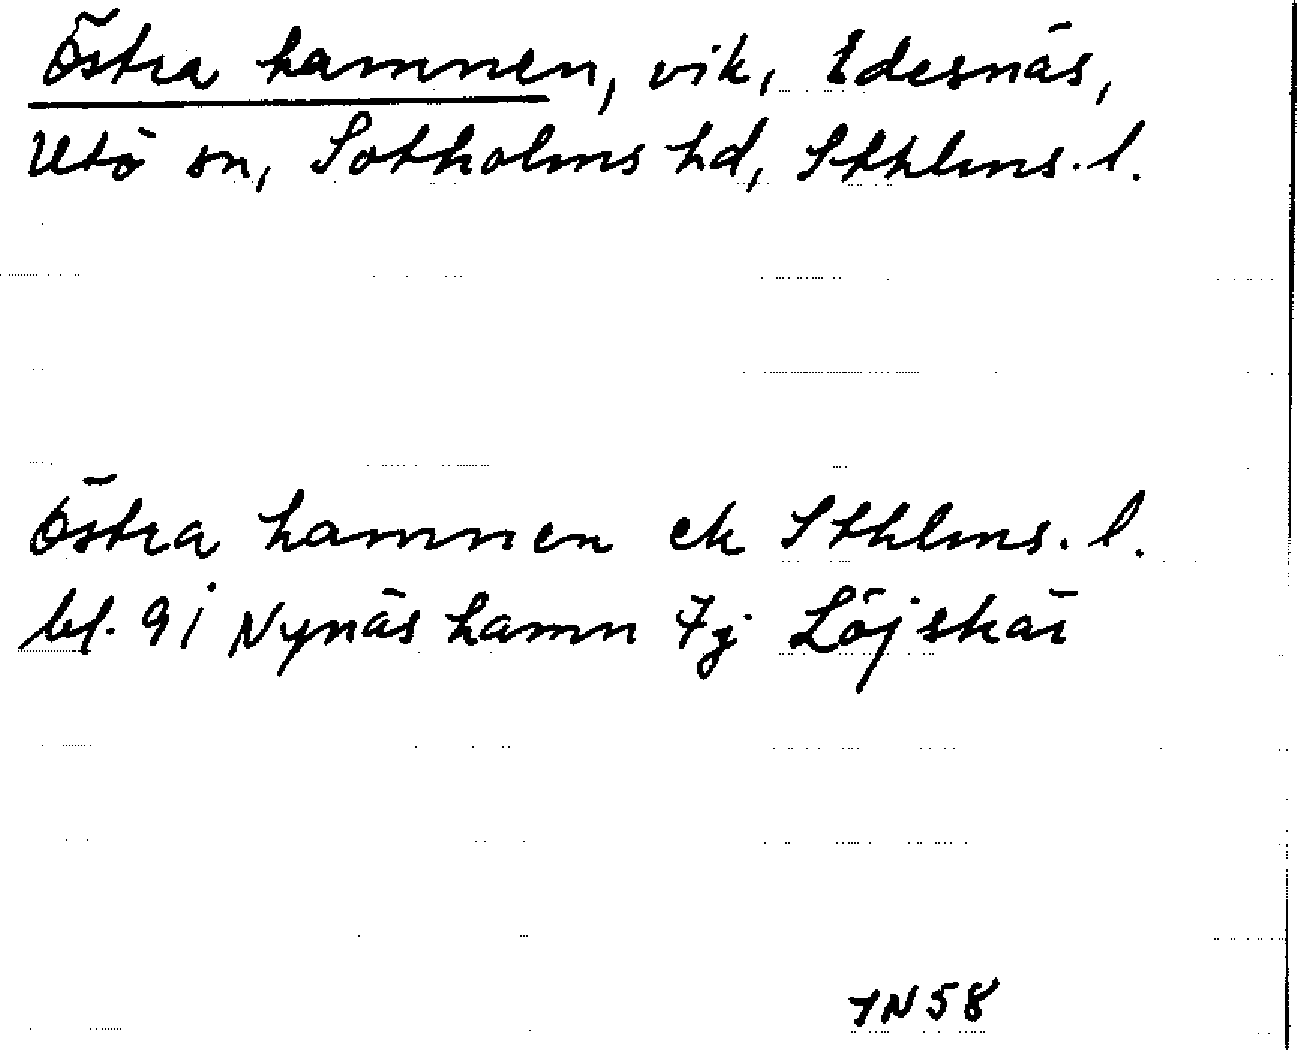 Östra hamnen, vik, Edesnäs,
Utö sn, Sotholms hd, Sthlms. l.
Östra hamnen ek Sthlms. l.
bl. 9i Nynäshamn 7j Löjskär
7N58